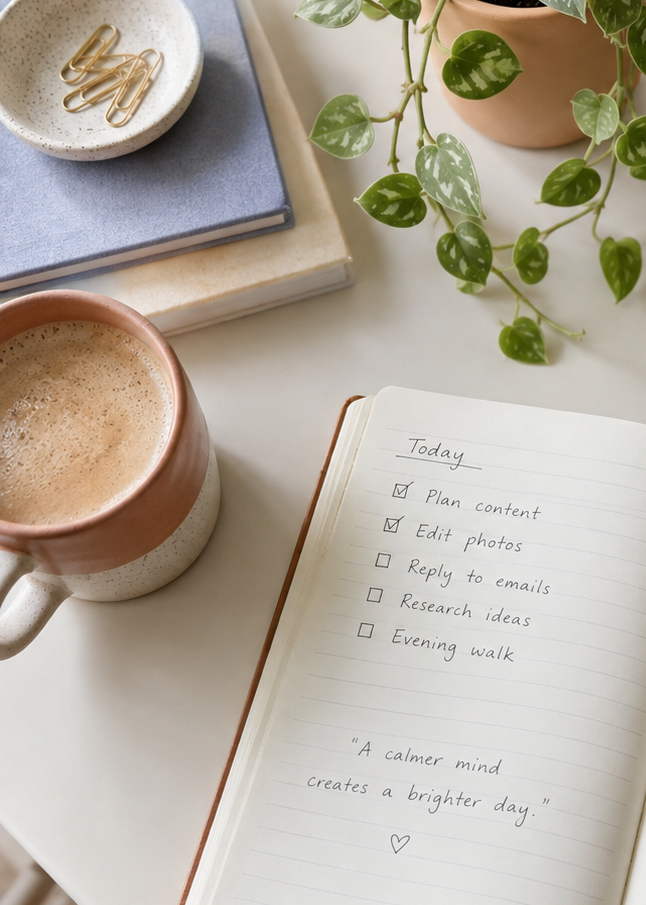 Today
Plan content
Edit photos
Reply to emails
Research ideas
Evening walk
"A calmer mind
creates a brighter day."